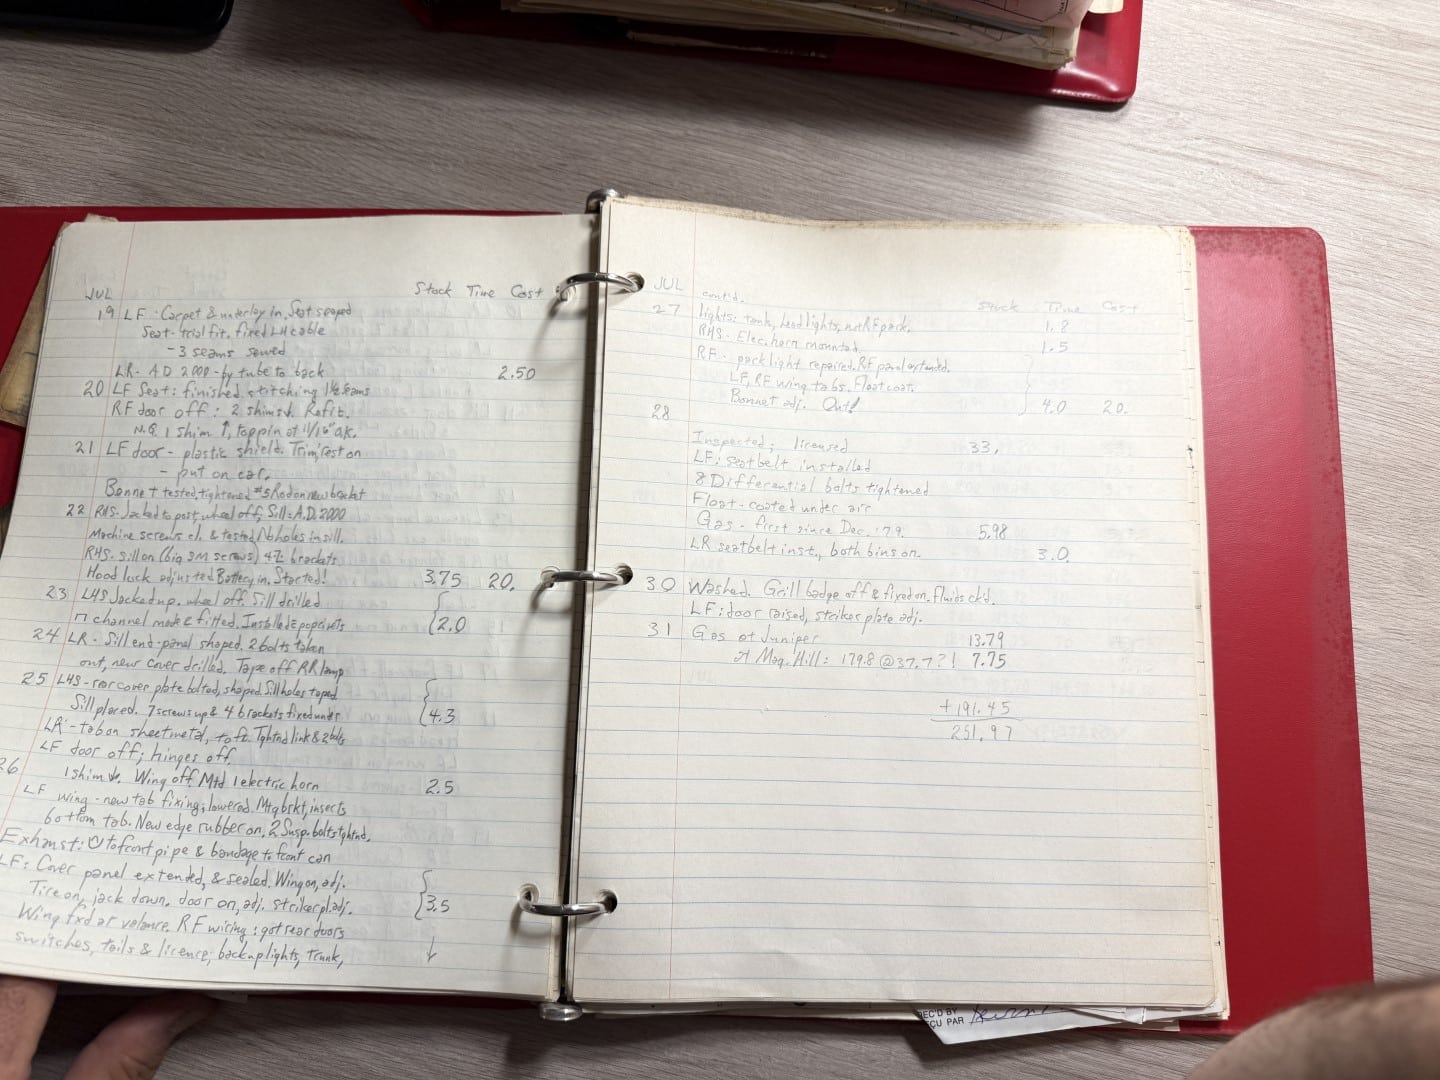 JUL Stock Time Cost
19 LF - Carpet & underlay in, Seat shaped
Seat - trial fit, fixed LH cable
- 3 seams sewed
LR - A.D. 2000 - by tube to back 2.50
20 LF Seat: finished stitching 1½ seams
RF door off: 2 shims↓. Refit.
N.G. 1 shim ↑, tap pin at 11/16" OK.
21 LF door - plastic shield. Trim, rest on
- put on car.
Bonnet tested, tightened #5 Rod on new bracket
22 RHS - Jacked to post, wheel off, Sill: A.D. 2000
Machine screws cl. & tested, No holes in sill.
RHS - sill on (big SM screws) 4 brackets
Hood lock adjusted Battery in. Started! 3.75 20.
23 LHS Jacked up. wheel off. Sill drilled
⊓ channel made & fitted. Installed poprivets 2.0
24 LR - Sill end-panel shaped. 2 bolts taken
out, new cover drilled. Tape off RR lamp
25 LHS - rear cover plate bolted, shaped. Sill holes taped
Sill placed. 7 screws up & 4 brackets fixed under 4.3
LR - tab on sheetmetal, to ft. Tghtnd link & 2 bolts
LF door off; hinges off.
26 1 shim↓. Wing off. Mtd 1 electric horn 2.5
LF wing - new tab fixing; lowered. Mtg brkt, inserts
bottom tab. New edge rubber on, 2 Susp. bolts tghtnd.
Exhaust: to front pipe & bandage to front can
LF: Cover panel extended, & sealed. Wing on, adj.
Tire on, jack down. door on, adj. striker pl adj. 3.5
Wing fxd at valance. RF wiring: got rear doors
switches, tails & licence; backup lights, trunk, ↓
JUL
cont'd. Stock Time Cost
27 lights: tank, head lights, not RF park. 1.8
RHS - Elec. horn mounted. 1.5
RF - park light repaired. RF panel extended.
LF, RF wing tabs. Floatcoat.
Bonnet adj. Out! 4.0 20.
28
Inspected; licensed 33.
LF: seatbelt installed
8 Differential bolts tightened
Float-coated under air
Gas - first since Dec. '79. 5.98
LR seatbelt inst., both bins on. 3.0
30 Washed. Grill badge off & fixed on. fluids ckd.
LF: door raised, striker plate adj.
31 Gas at Juniper 13.79
at Mag. Hill: 179.8 @ 37.7?! 7.75
+191.45
251.97
REC'D BY
REÇU PAR